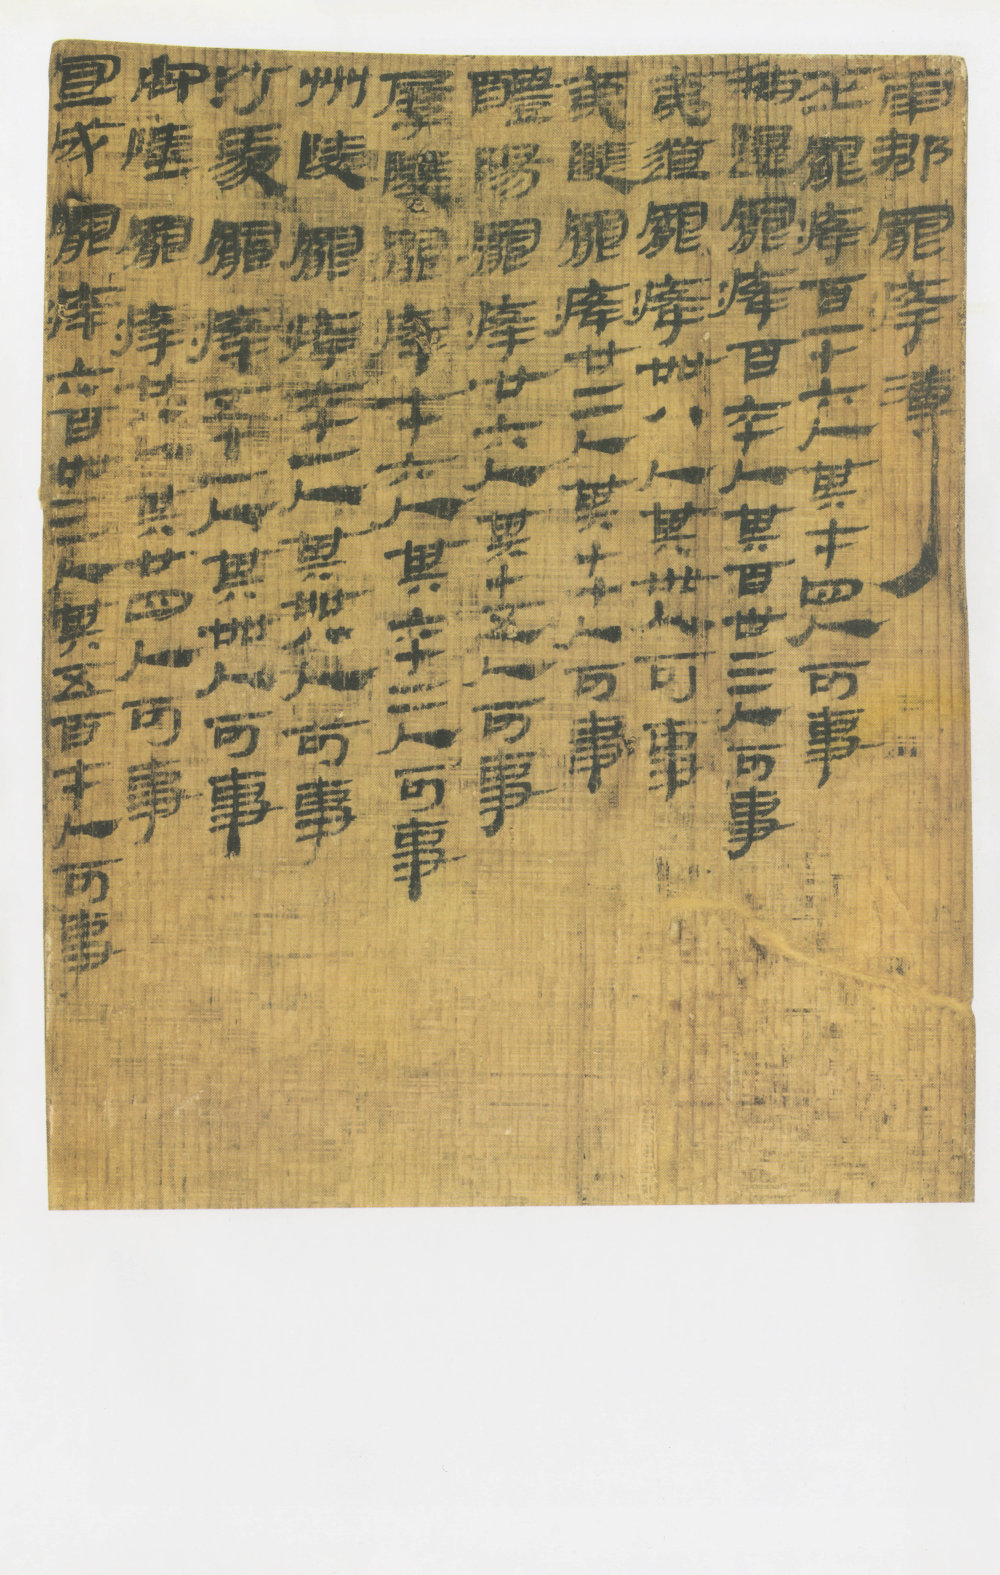 南郡罷癃簿
巫罷癃百一十六人其七十四人可事
秭歸罷癃百六十人其百卅三人可事
夷道罷癃卌八人其卌人可事
夷陵罷癃廿二人其十七人可事
醴陽罷癃廿六人其十五人可事
孱陵罷癃七十六人其六十二人可事
州陵罷癃六十一人其卌八人可事
沙羨罷癃五十一人其卌人可事
安陸罷癃廿八人其廿四人可事
宜成罷癃六百卌三人其五百七十人可事